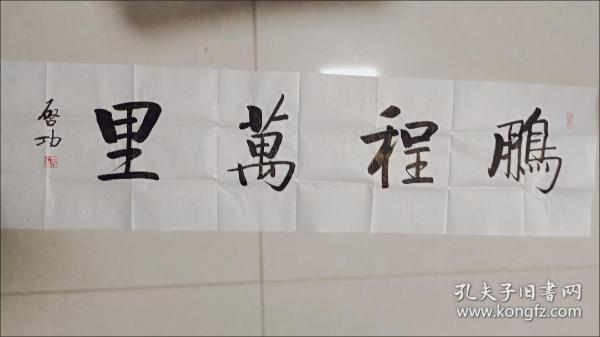 鵬程萬里
啓功
孔夫子旧書网
www.kongfz.com